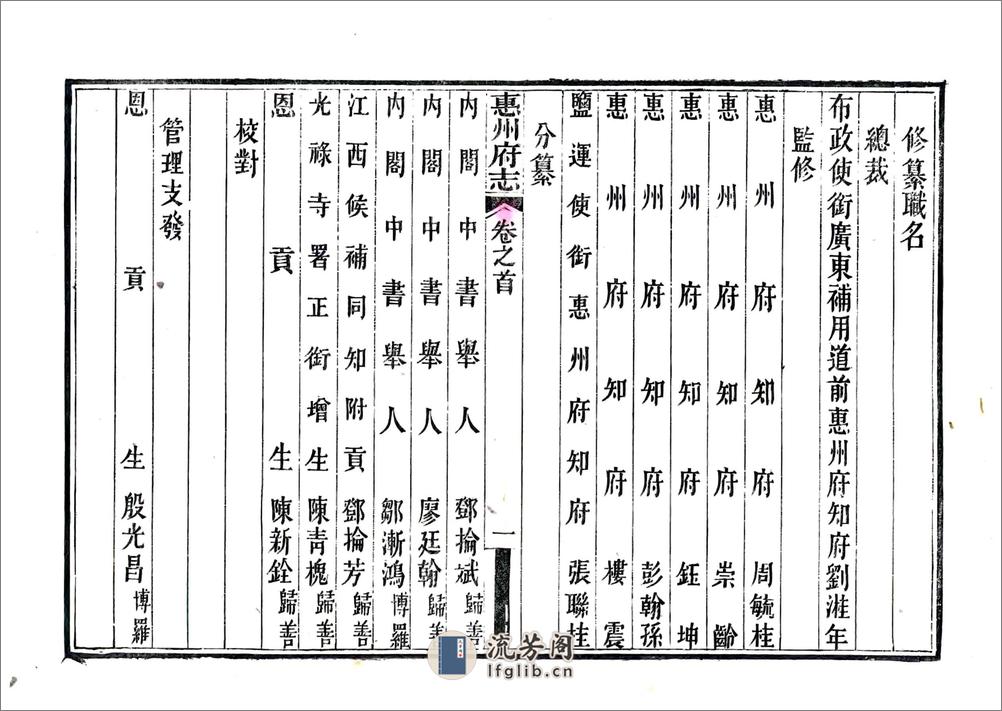 修纂職名
總裁
布政使銜廣東補用道前惠州府知府劉溎年
監修
惠州府知府周毓桂
惠州府知府崇齡
惠州府知府鈺坤
惠州府知府彭翰孫
惠州府知府樓震
鹽運使銜惠州府知府張聯桂
分纂
惠州府志 卷之首 一
內閣中書舉人鄧掄斌歸善
內閣中書舉人廖廷翰歸善
內閣中書舉人鄒漸鴻博羅
江西候補同知附貢鄧掄芳歸善
光祿寺署正銜增生陳靑槐歸善
恩貢生陳新銓歸善
校對
管理支發
恩貢生殷光昌博羅
流芳阁
lfglib.cn